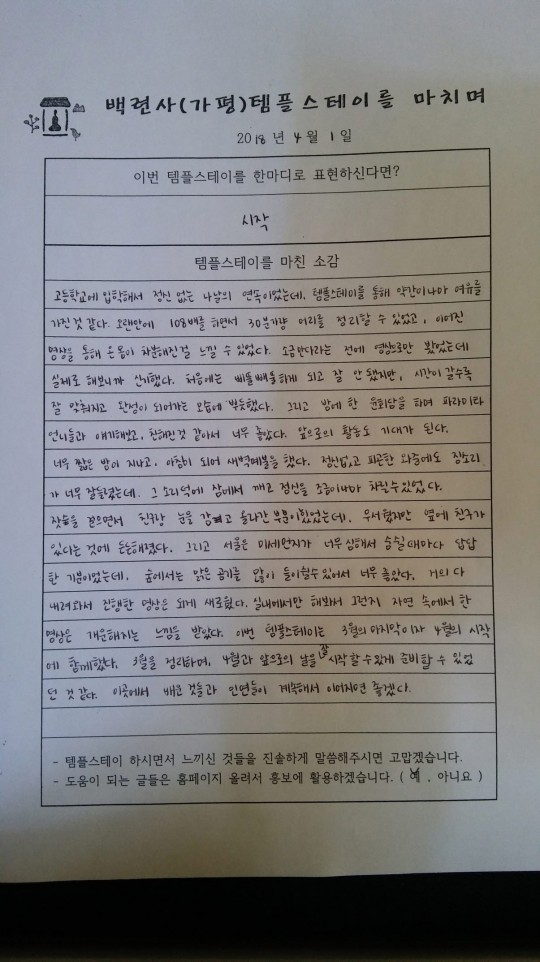 백련사(가평)템플스테이를 마치며
2018 년 4 월 1 일
이번 템플스테이를 한마디로 표현하신다면?
시작
템플스테이를 마친 소감
고등학교에 입학해서 정신 없는 나날의 연속이었는데, 템플스테이를 통해 약간이나마 여유를
가진 것 같다. 오랜만에 108배를 하면서 30분가량 머리를 정리할 수 있었고, 이어진
명상을 통해 온몸이 차분해진걸 느낄 수 있었다. 소금만다라는 전에 영상으로만 봤었는데
실제로 해보니까 신기했다. 처음에는 삐뚤빼뚤하게 되고 잘 안됐지만, 시간이 갈수록
잘 맞춰지고 완성이 되어가는 모습에 뿌듯했다. 그리고 방에 한 윤회담을 하며 파라미타
언니들과 얘기해보고, 친해진것 같아서 너무 좋았다. 앞으로의 활동도 기대가 된다.
너무 짧은 밤이 지나고, 아침이 되어 새벽예불을 했다. 정신없고 피곤한 와중에도 징소리
가 너무 잘들렸는데. 그 소리 덕에 잠에서 깨고 정신을 조금이나마 차릴수있었다.
잣숲을 걸으면서 친구랑 눈을 감고 올라간 부분이 있었는데, 무서웠지만 옆에 친구가
있다는 것에 든든해졌다. 그리고 서울은 미세먼지가 너무 심해서 숨쉴때마다 답답
한 기분이었는데, 숲에서는 맑은 공기를 많이 들이쉴수 있어서 너무 좋았다. 거의 다
내려와서 진행한 명상은 되게 새로웠다. 실내에서만 해봐서 그런지 자연 속에서 한
명상은 개운해지는 느낌을 받았다. 이번 템플스테이는 3월의 마지막이자 4월의 시작
에 함께했다. 3월을 정리하며, 4월과 앞으로의 날을 잘 시작할 수 있게 준비할 수 있었
던 것 같다. 이곳에서 배운 것들과 인연들이 계속해서 이어지면 좋겠다.
- 템플스테이 하시면서 느끼신 것들을 진솔하게 말씀해주시면 고맙겠습니다.
- 도움이 되는 글들은 홈페이지 올려서 홍보에 활용하겠습니다. ( 예 , 아니요 )